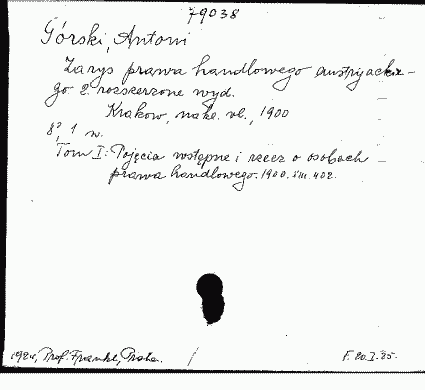 79038
Górski, Antoni
Zarys prawa handlowego austryackie-
go 2. rozszerzone wyd.
Krakow, nakł. wł., 1900
8° 1 w.
Tom I: Pojęcia wstępne i rzecz o osobach
prawa handlowego. 1900. s. 402.
1924, Prof. Frankl, Praha. / F. 20.I.25.